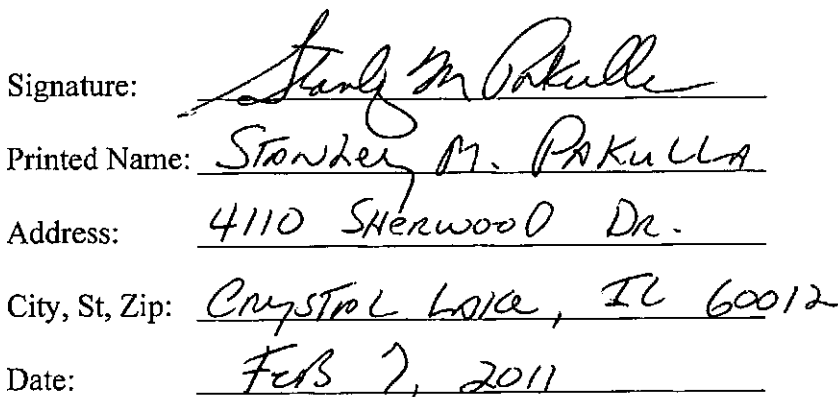 Signature: Stanley M Pakulla
Printed Name: Stanley M. Pakulla
Address: 4110 Sherwood Dr.
City, St, Zip: Crystal Lake, IL 60012
Date: Feb 7, 2011